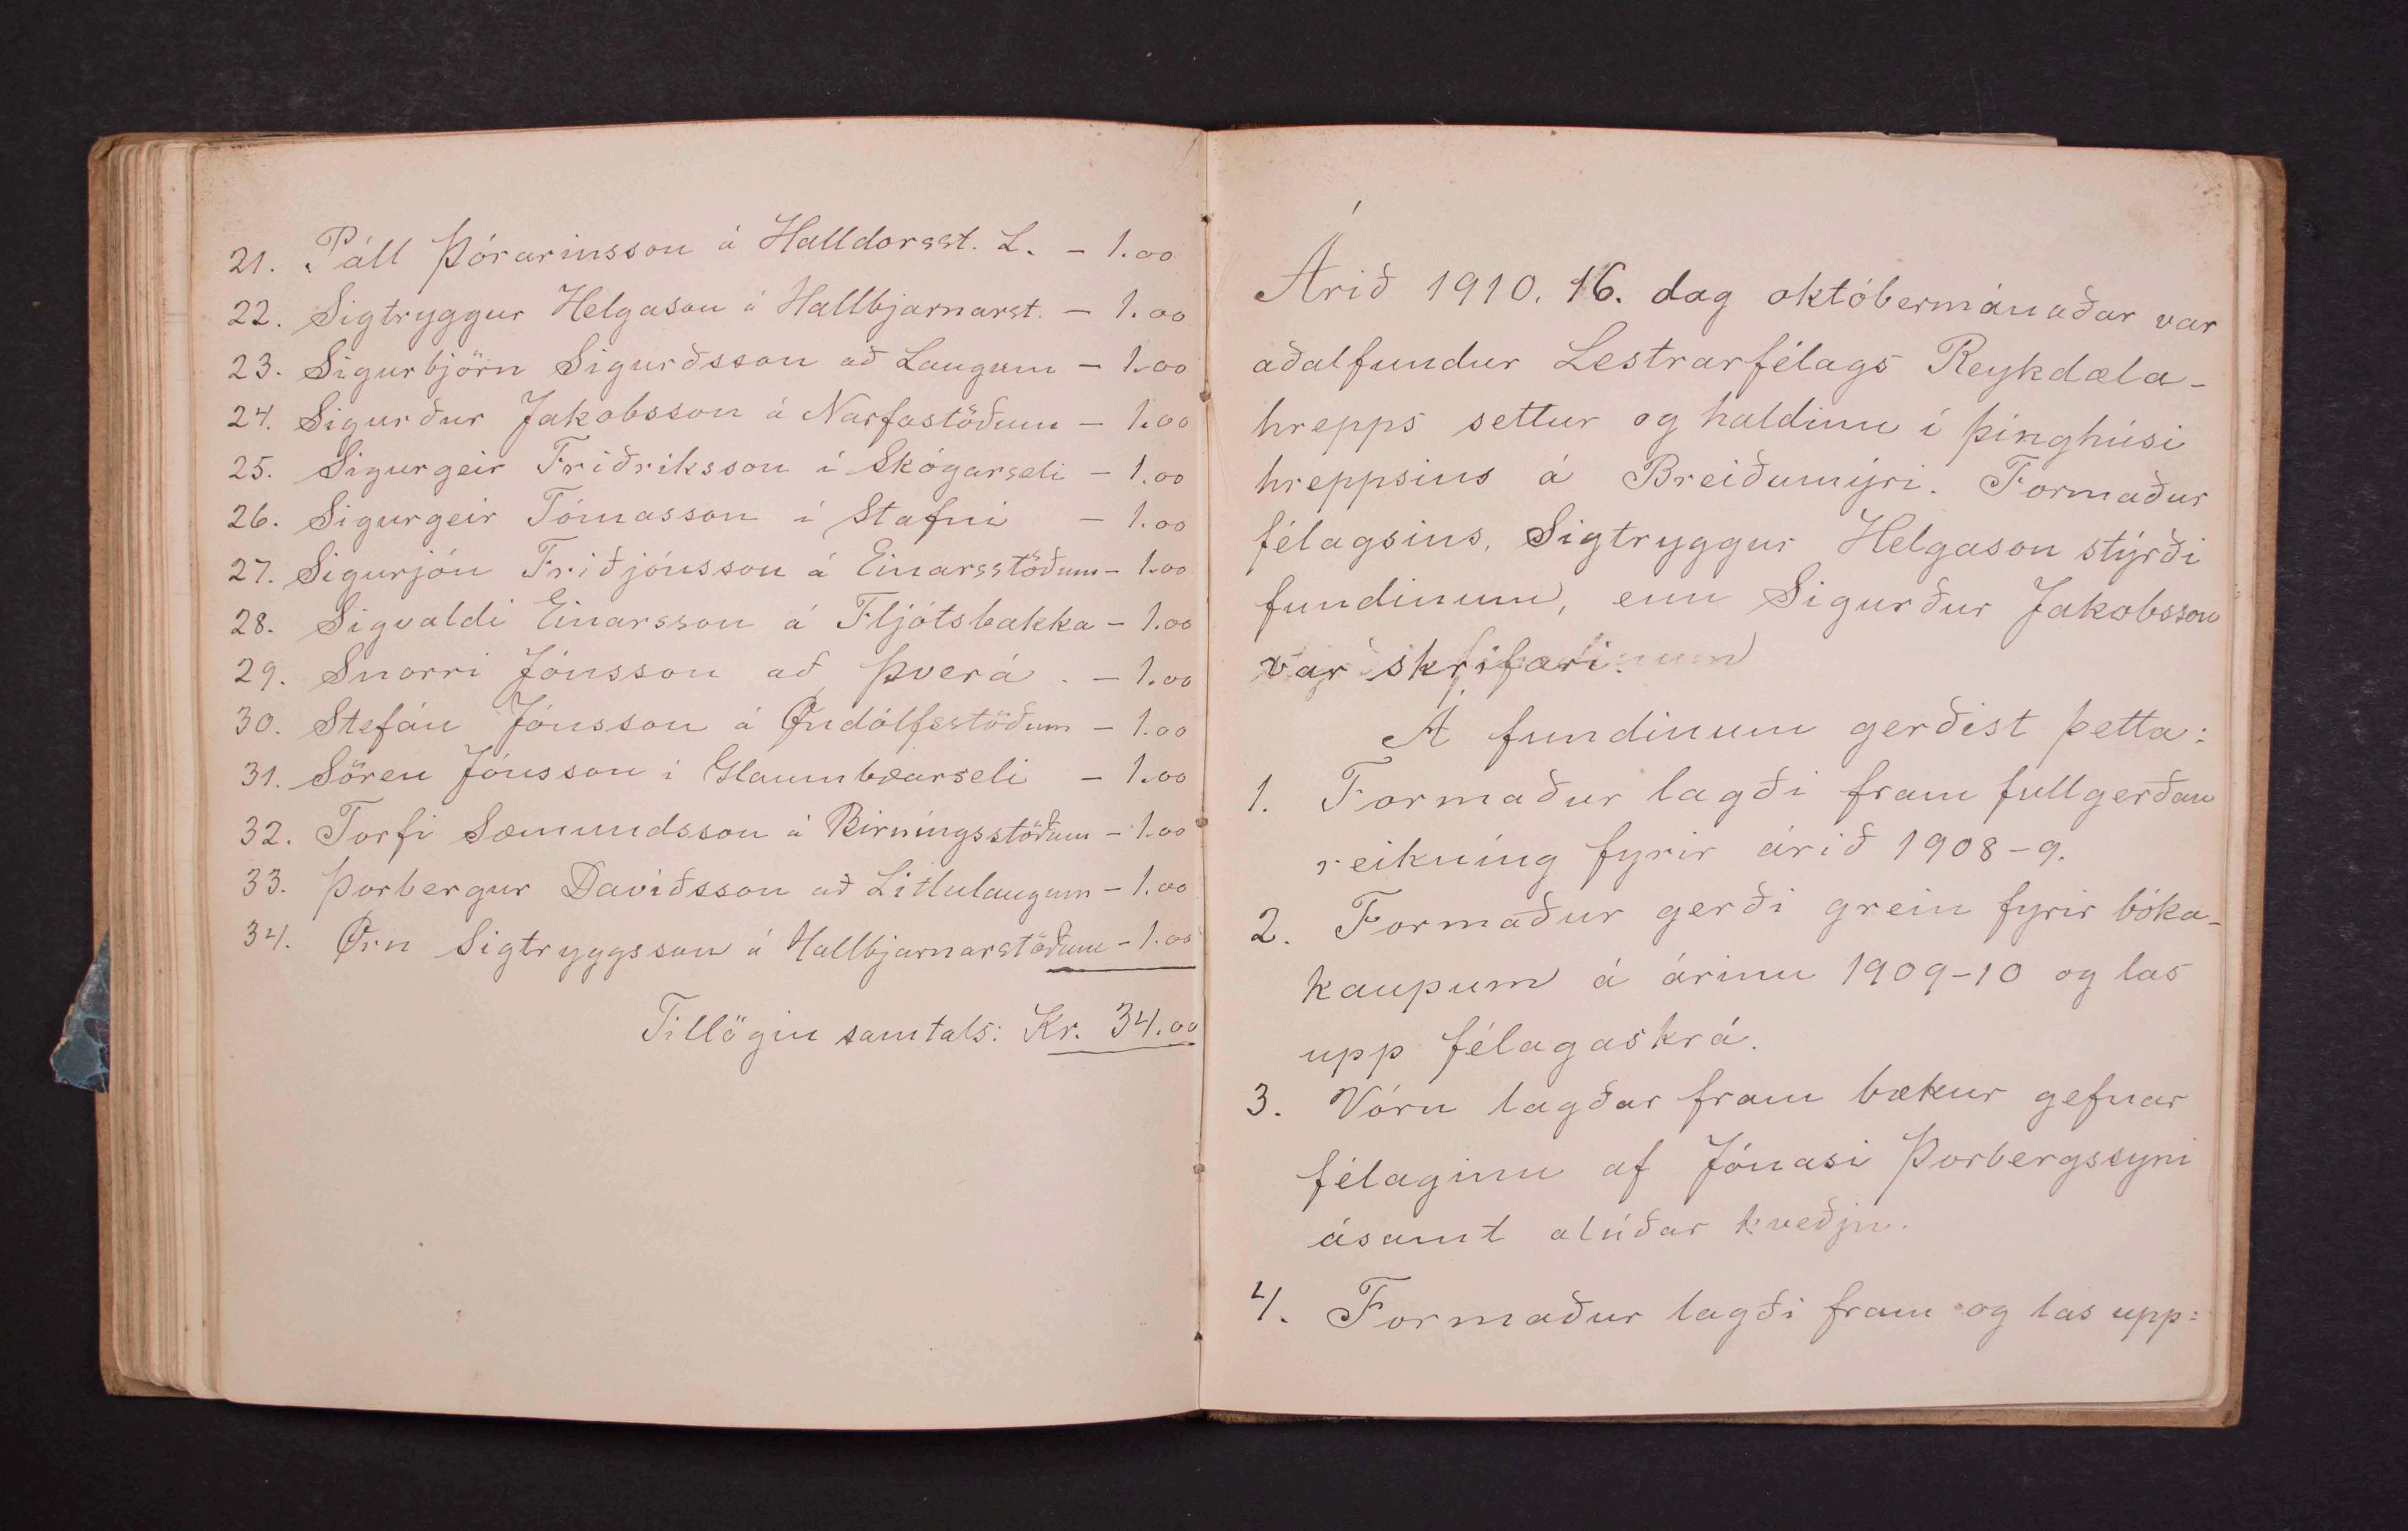 21. Páll Þórarinsson á Halldorsst. L. - 1.00
22. Sigtryggur Helgason á Hallbjarnarst. - 1.00
23. Sigurbjörn Sigurðsson að Laugum - 1.00
24. Sigurður Jakobsson á Narfastöðum - 1.00
25. Sigurgeir Friðriksson í Skógarseli - 1.00
26. Sigurgeir Tómasson í Stafni - 1.00
27. Sigurjón Friðjónsson á Einarsstöðum - 1.00
28. Sigvaldi Einarsson á Fljótsbakka - 1.00
29. Snorri Jónsson að Þverá. - 1.00
30. Stefán Jónsson á Öndólfsstöðum - 1.00
31. Sören Jónsson í Glaumbæarseli - 1.00
32. Torfi Sæmundsson á Birníngsstöðum - 1.00
33. Þorbergur Davíðsson að Litlulaugum - 1.00
34. Örn Sigtryggsson á Hallbjarnarstöðum - 1.00
Tillögin samtals: Kr. 34.00
Árið 1910. 16. dag októbermánaðar var
aðalfundur Lestrarfélags Reykdæla-
hrepps settur og haldinn í þinghúsi
hreppsins á Breiðumýri. Formaður
félagsins, Sigtryggur Helgason stýrði
fundinum, enn Sigurður Jakobsson
var skrifari.
Á fundinum gerðist þetta:
1. Formaður lagði fram fullgerðan
reikníng fyrir árið 1908-9.
2. Formaður gerði grein fyrir bóka-
kaupum á árinu 1909-10 og las
upp félagaskrá.
3. Vóru lagðar fram bækur gefnar
félaginu af Jónasi Þorbergssyni
ásamt alúðar kveðju.
4. Formaður lagði fram og las upp: